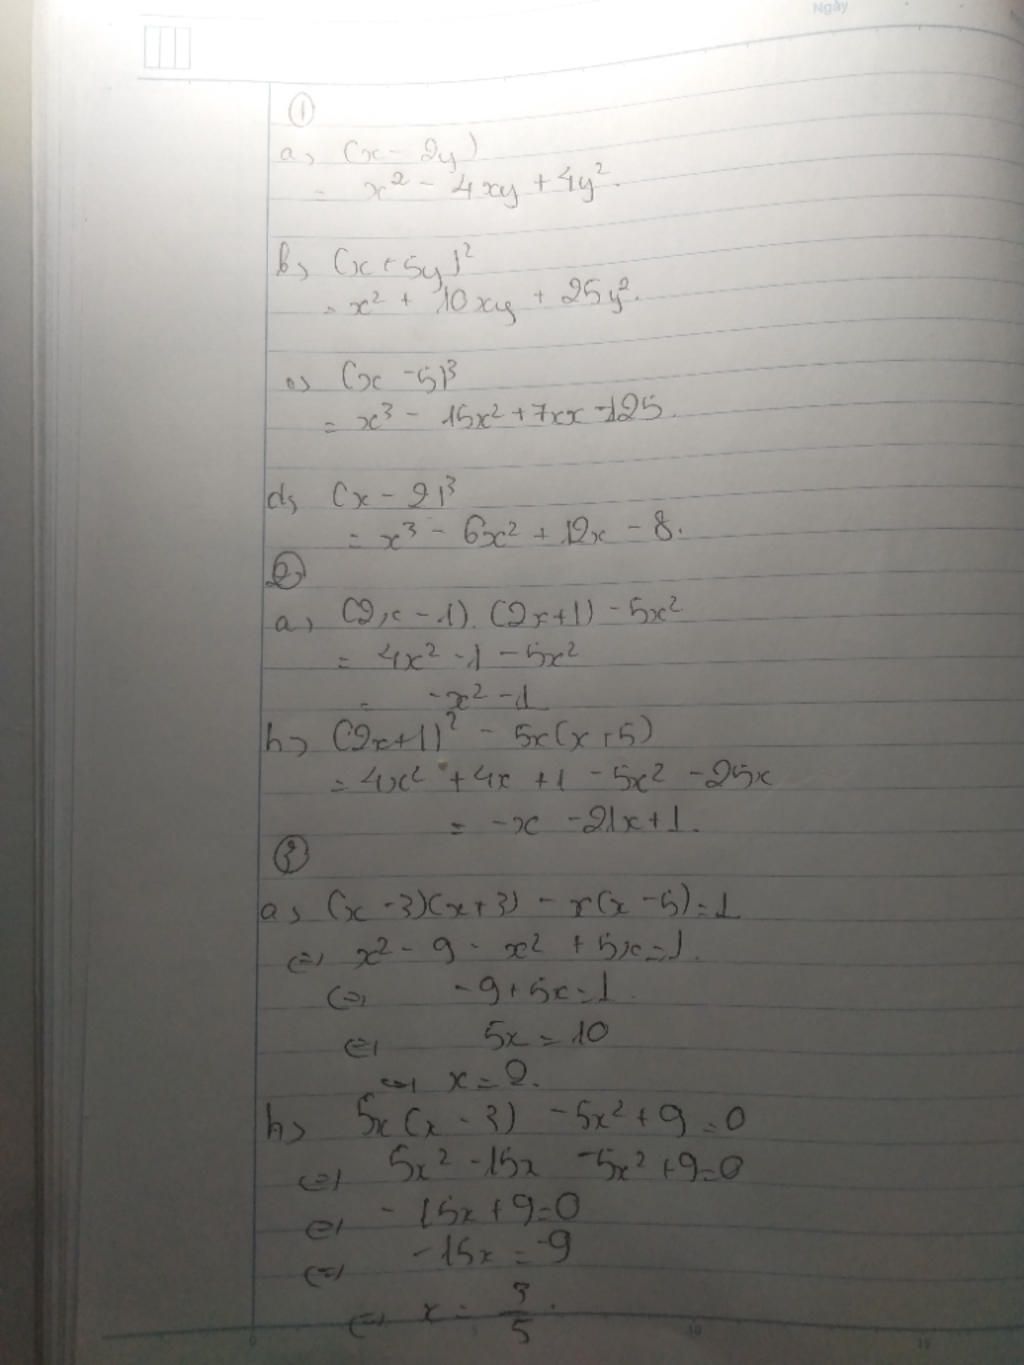 Ngày
①
a, (x - 2y)
= x² - 4xy + 4y².
b, (x + 5y)²
= x² + 10xy + 25y².
c, (x - 5)³
= x³ - 15x² + 7xx - 125.
d, (x - 2)³
= x³ - 6x² + 12x - 8.
②
a, (2x - 1). (2x + 1) - 5x²
= 4x² - 1 - 5x²
= -x² - 1
b, (2x + 1)² - 5x(x + 5)
= 4x² + 4x + 1 - 5x² - 25x
= -x - 21x + 1.
③
a, (x - 3)(x + 3) - x(x - 5) = 1
⇔ x² - 9 - x² + 5x = 1.
⇔ -9 + 5x = 1.
⇔ 5x = 10
⇔ x = 2.
b, 5x(x - 3) - 5x² + 9 = 0
⇔ 5x² - 15x - 5x² + 9 = 0
⇔ -15x + 9 = 0
⇔ -15x = -9
⇔ x = 3/5.
0 5 10 15